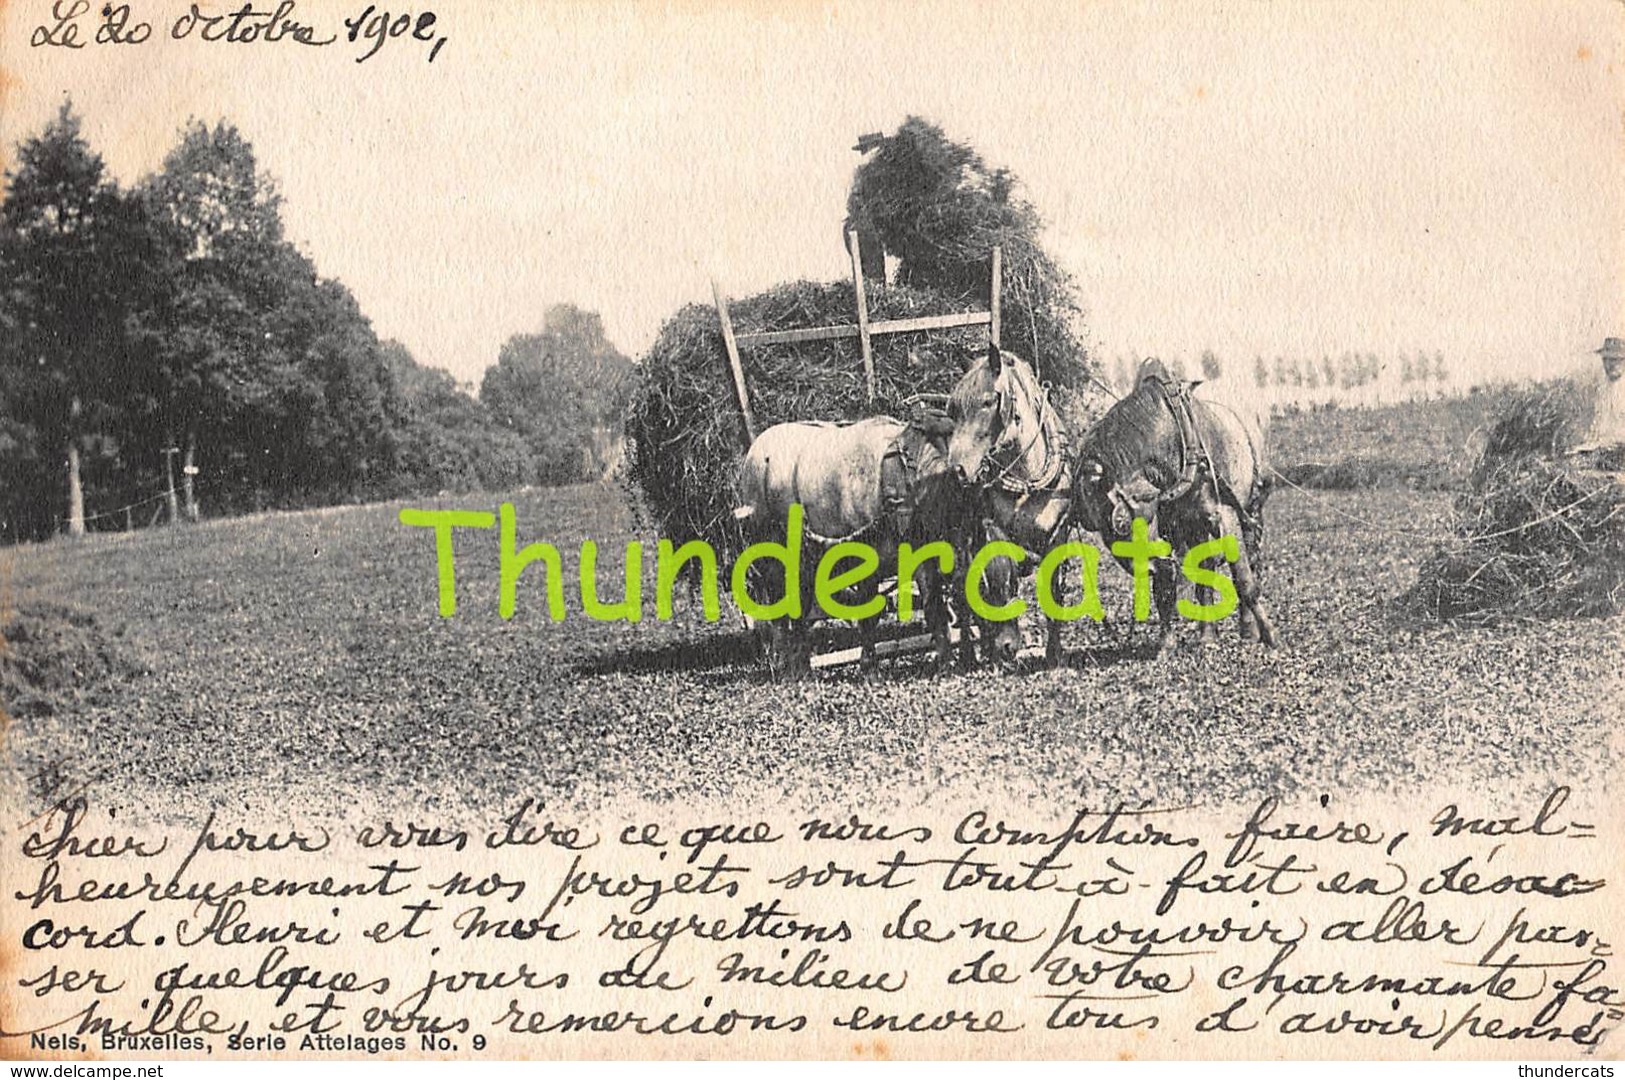 Le 20 Octobre 1902,
Thundercats
hier pour vous dire ce que nous comptions faire, mal=
heureusement nos projets sont tout-à-fait en désac=
cord. Henri et moi regrettons de ne pouvoir aller pas=
ser quelques jours au milieu de votre charmante fa=
mille, et vous remercions encore tous d'avoir pensé
Nels, Bruxelles, Serie Attelages No. 9
www.delcampe.net
thundercats